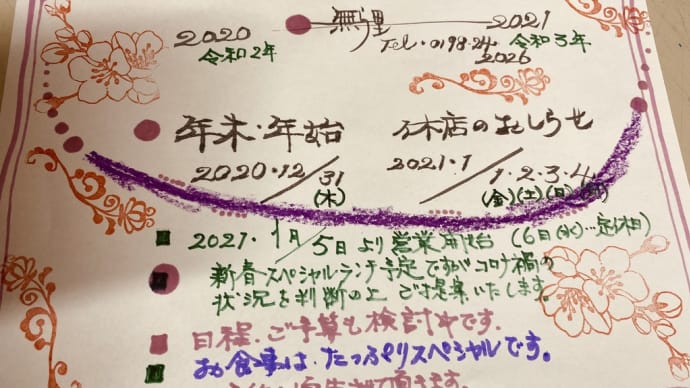 2020 無浬 2021
令和2年 Tel・0198-24-2026 令和3年
年末・年始 休店のおしらせ
2020・12/31(木) 2021・1/1・2・3・4(金)(土)(日)(月)
■ 2021・1月/5日より営業開始(6日(水)…定休日)
■ 新春スペシャルランチ予定ですがコロナ禍の
状況を判断の上 ご提案いたします
■ 日程・ご予算も検討中です。
■ お食事は、たっぷりスペシャルです。